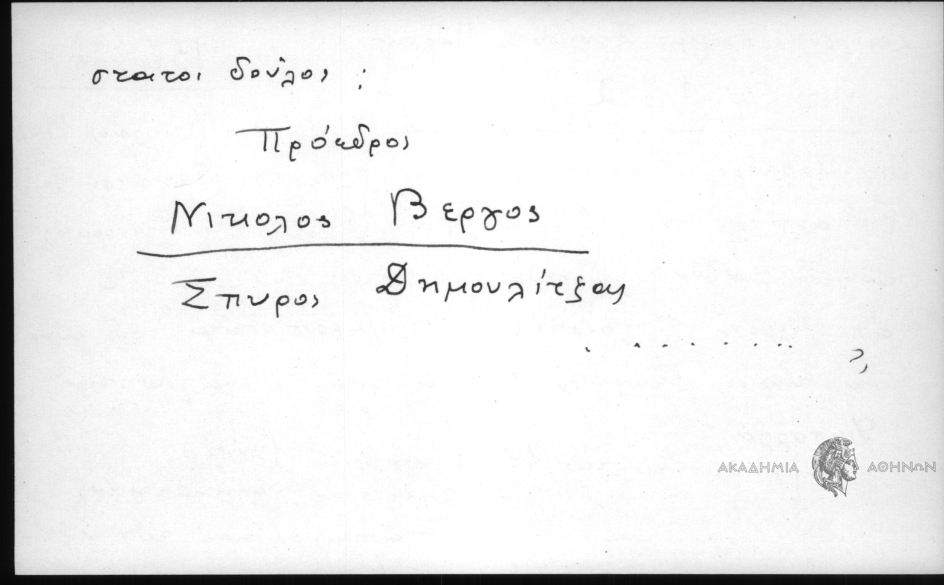 στατοι δούλοι :
Πρόεδρος
Νικολος Βεργος
Σπυρος Δημουλίτζας
. . . . . . . . »
ΑΚΑΔΗΜΙΑ ΑΘΗΝΩΝ